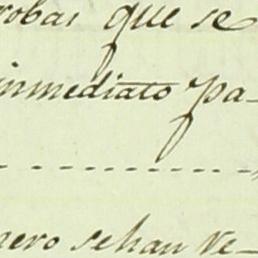 robas que se
inmediato pa-
nero sehan Ve-